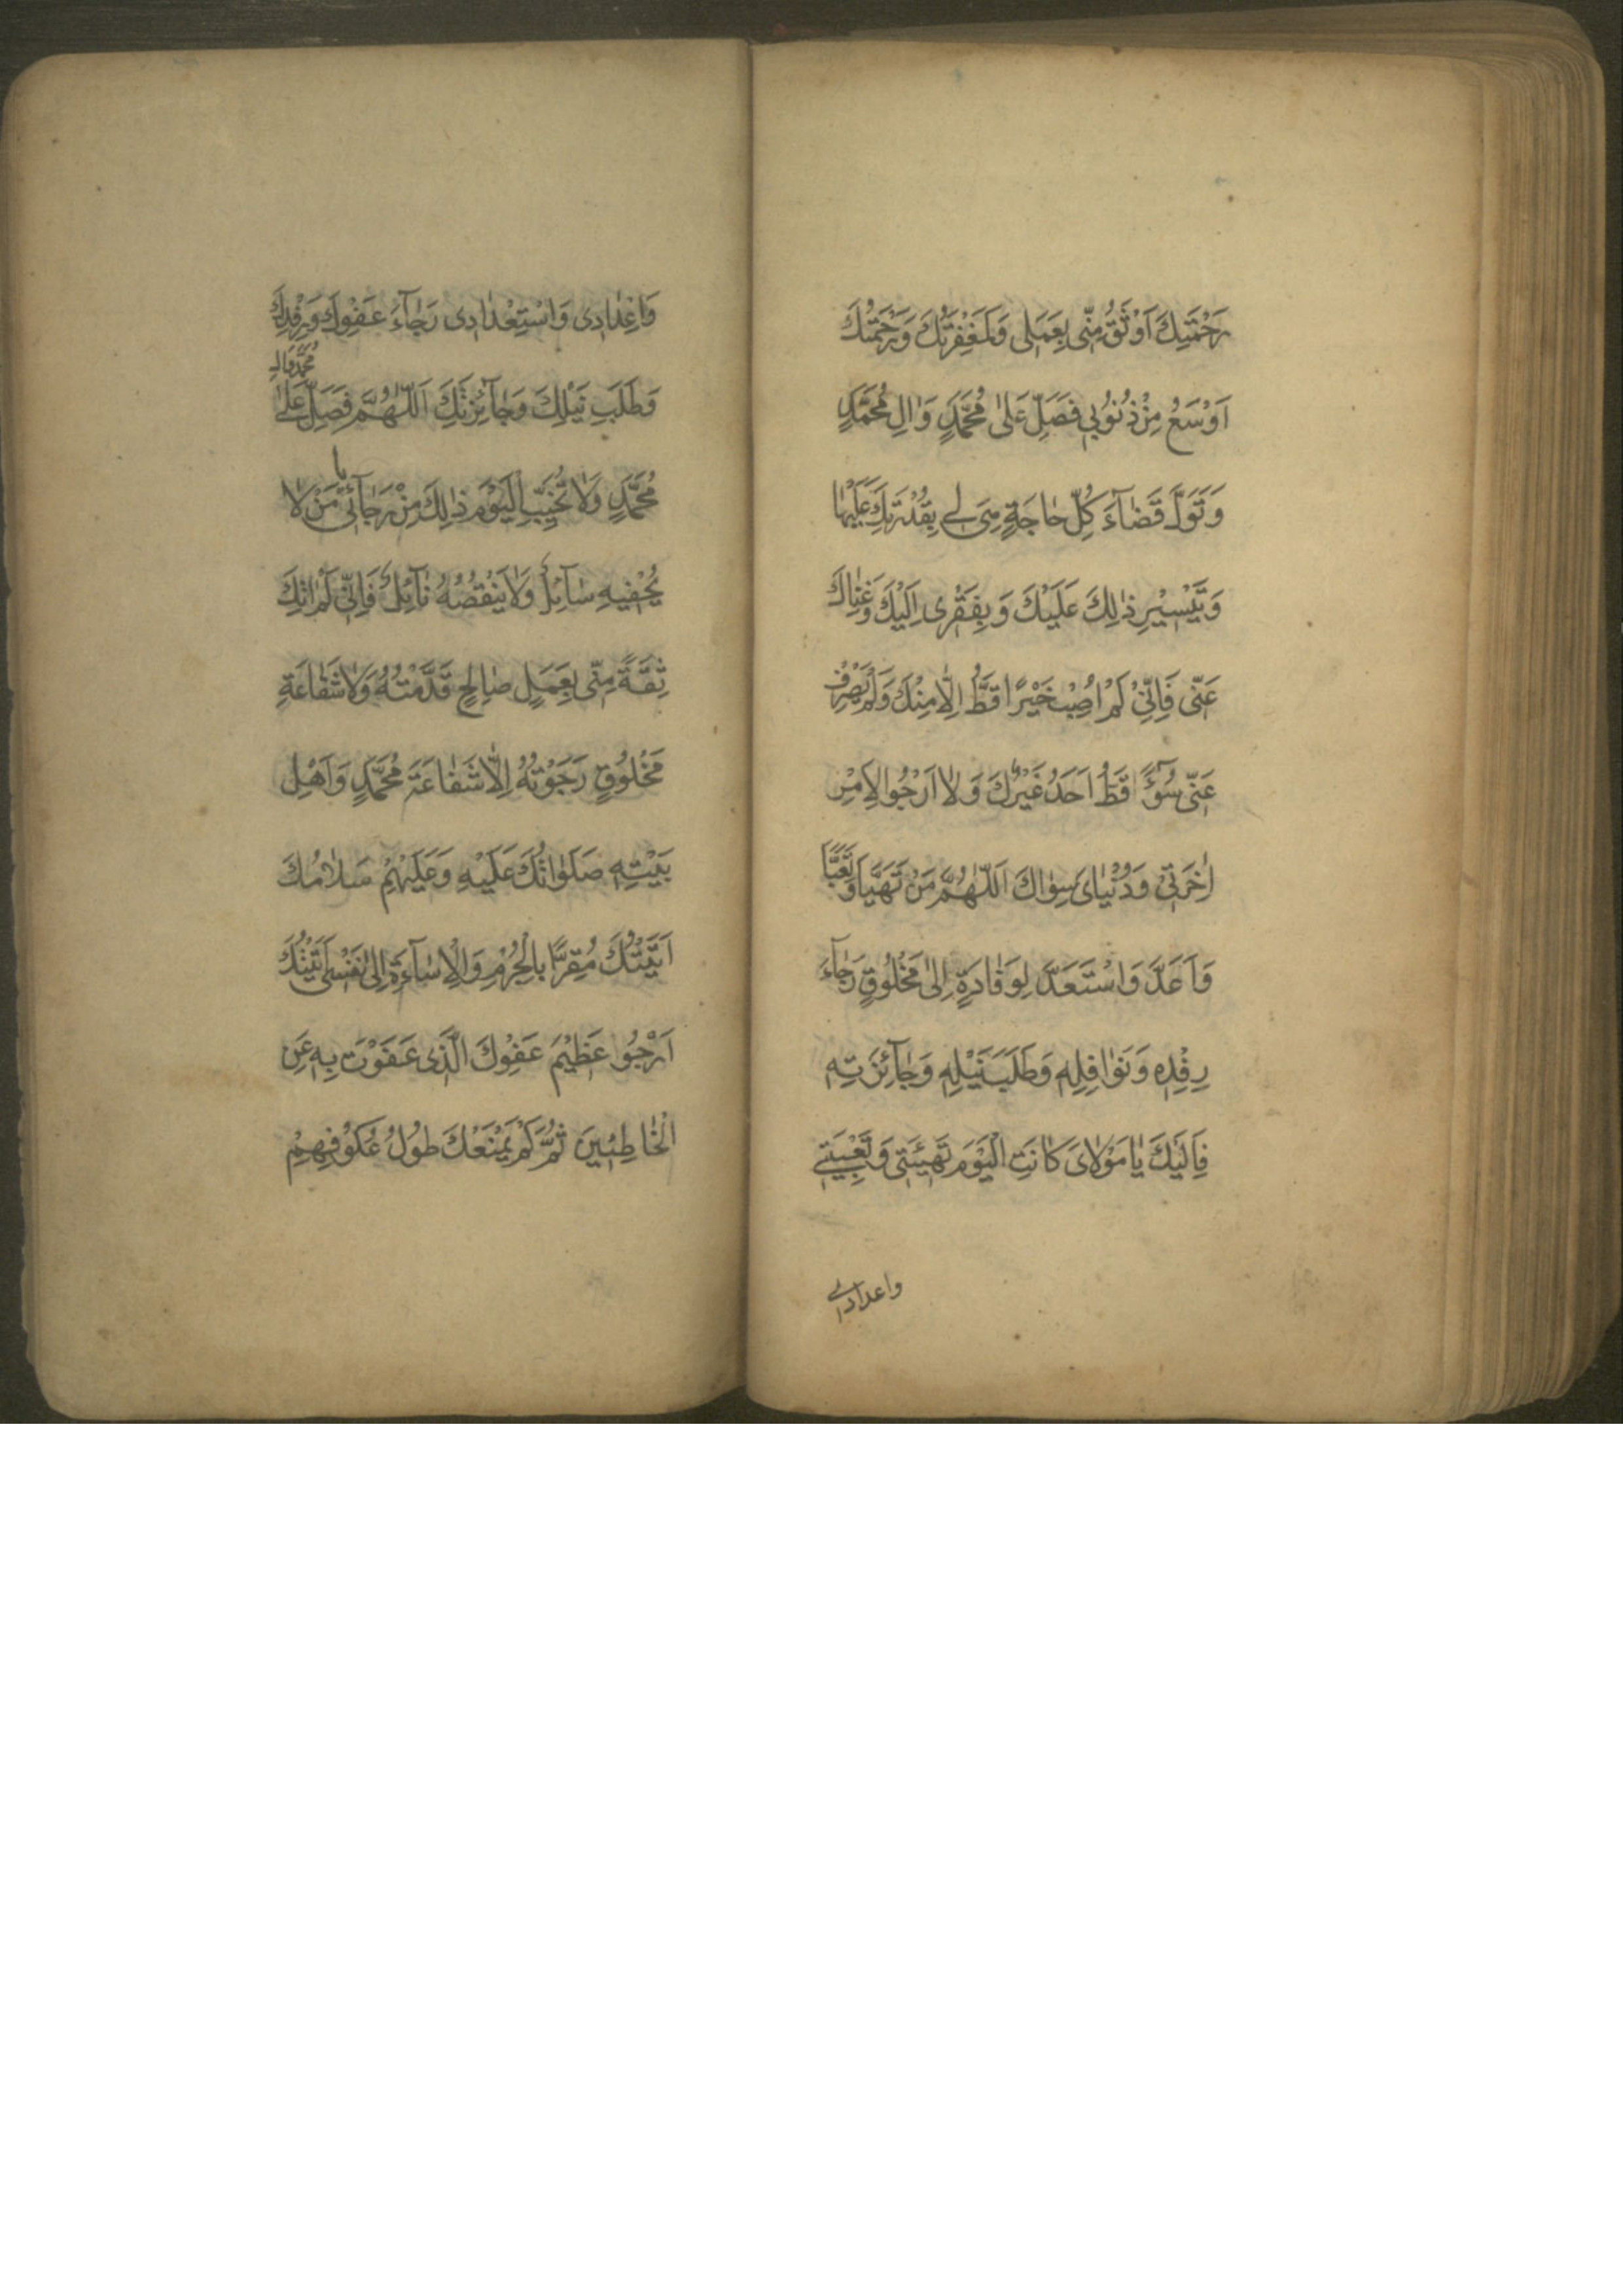 رَحْمَتِكَ اَوْثَقُ مِنّى بِعَمَلى وَلَمَغْفِرَتُكَ وَرَحْمَتُكَ
اَوْسَعُ مِنْ ذُنُوُبي فَصَلِّ عَلىٰ مُحَمَّدٍ وَاٰلِ مُحَمَّدٍ
وَتَوَلَّ قَضٰاءَ كُلِّ حٰاجَةٍ هِىَ لى بِقُدْرَتِكَ عَلَيْهٰا
وَتَيْسيْرِ ذٰلِكَ عَلَيْكَ وَبِفَقْرى اِلَيْكَ وَغِنٰاكَ
عَنّى فَاِنّىْ لَمْ اُصِبْ خَيْرًا قَطُّ اِلّٰا مِنْكَ وَلَمْ يَصْرِفْ
عَنّى سُوۤءً قَطُّ اَحَدٌ غَيْرُكَ وَلٰا اَرْجُوا لِاَمْرِ
اٰخِرَتىْ وَدُنْيٰاىَ سِوٰاكَ اَللّٰهُمَّ مَنْ تَهَيَّأَ وَتَعَبَّأَ
وَاَعَدَّ وَاسْتَعَدَّ لِوَفٰادَةٍ اِلىٰ مَخْلُوُقٍ رَجٰاءَ
رِفْدِهِ وَنَوٰافِلِهِ وَطَلَبَ نَيْلِهِ وَجٰائِزَتِهِ
فَاِلَيْكَ يٰا مَوْلٰاىَ كٰانَتِ الْيَوْمَ تَهْيِئَتى وَتَعْبِيَتى
واعدادى
وَاِعْدٰادى وَاسْتِعْدٰادى رَجٰاءَ عَفْوِكَ وَرِفْدِكَ
وَطَلَبِ نَيْلِكَ وَجٰائِزَتِكَ اَللّٰهُمَّ فَصَلِّ عَلىٰ مُحَمَّدٍ وَاٰلِ
مُحَمَّدٍ وَلٰا تُخَيِّبِ الْيَوْمَ ذٰلِكَ مِنْ رَجٰائى يا مَنْ لٰا
يُحْفيهِ سٰائِلٌ وَلٰا يَنْقُصُهُ نٰائِلٌ فَاِنّى لَمْ اٰتِكَ
ثِقَةً مِنّى بِعَمَلٍ صٰالِحٍ قَدَّمْتُهُ وَلٰا شَفٰاعَةِ
مَخْلُوُقٍ رَجَوْتُهُ اِلّٰا شَفٰاعَةَ مُحَمَّدٍ وَاَهْلِ
بَيْتِهِ صَلَوٰاتُكَ عَلَيْهِ وَعَلَيْهِمْ سَلٰامُكَ
اَتَيْتُكَ مُقِرًّا بِالْجُرْمِ وَالْاِسٰاءَةِ اِلىٰ نَفْسى اَتَيْتُكَ
اَرْجُوا عَظيْمَ عَفْوِكَ الَّذى عَفَوْتَ بِهِ عَنِ
الْخٰاطِئينَ ثُمَّ لَمْ يَمْنَعْكَ طُولُ عُكُوْفِهِمْ